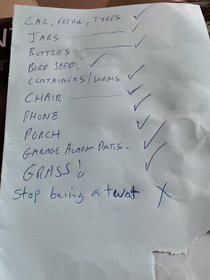 CAR, PETROL, TYRES ✓
JARS ✓
BOTTLES ✓
BIRD SEED! ✓
CONTAINERS/WORMS ✓
CHAIR ✓
PHONE ✓
PORCH ✓
GARAGE ALARM BATTS. ✓
GRASS! ✓
Stop being a twat X